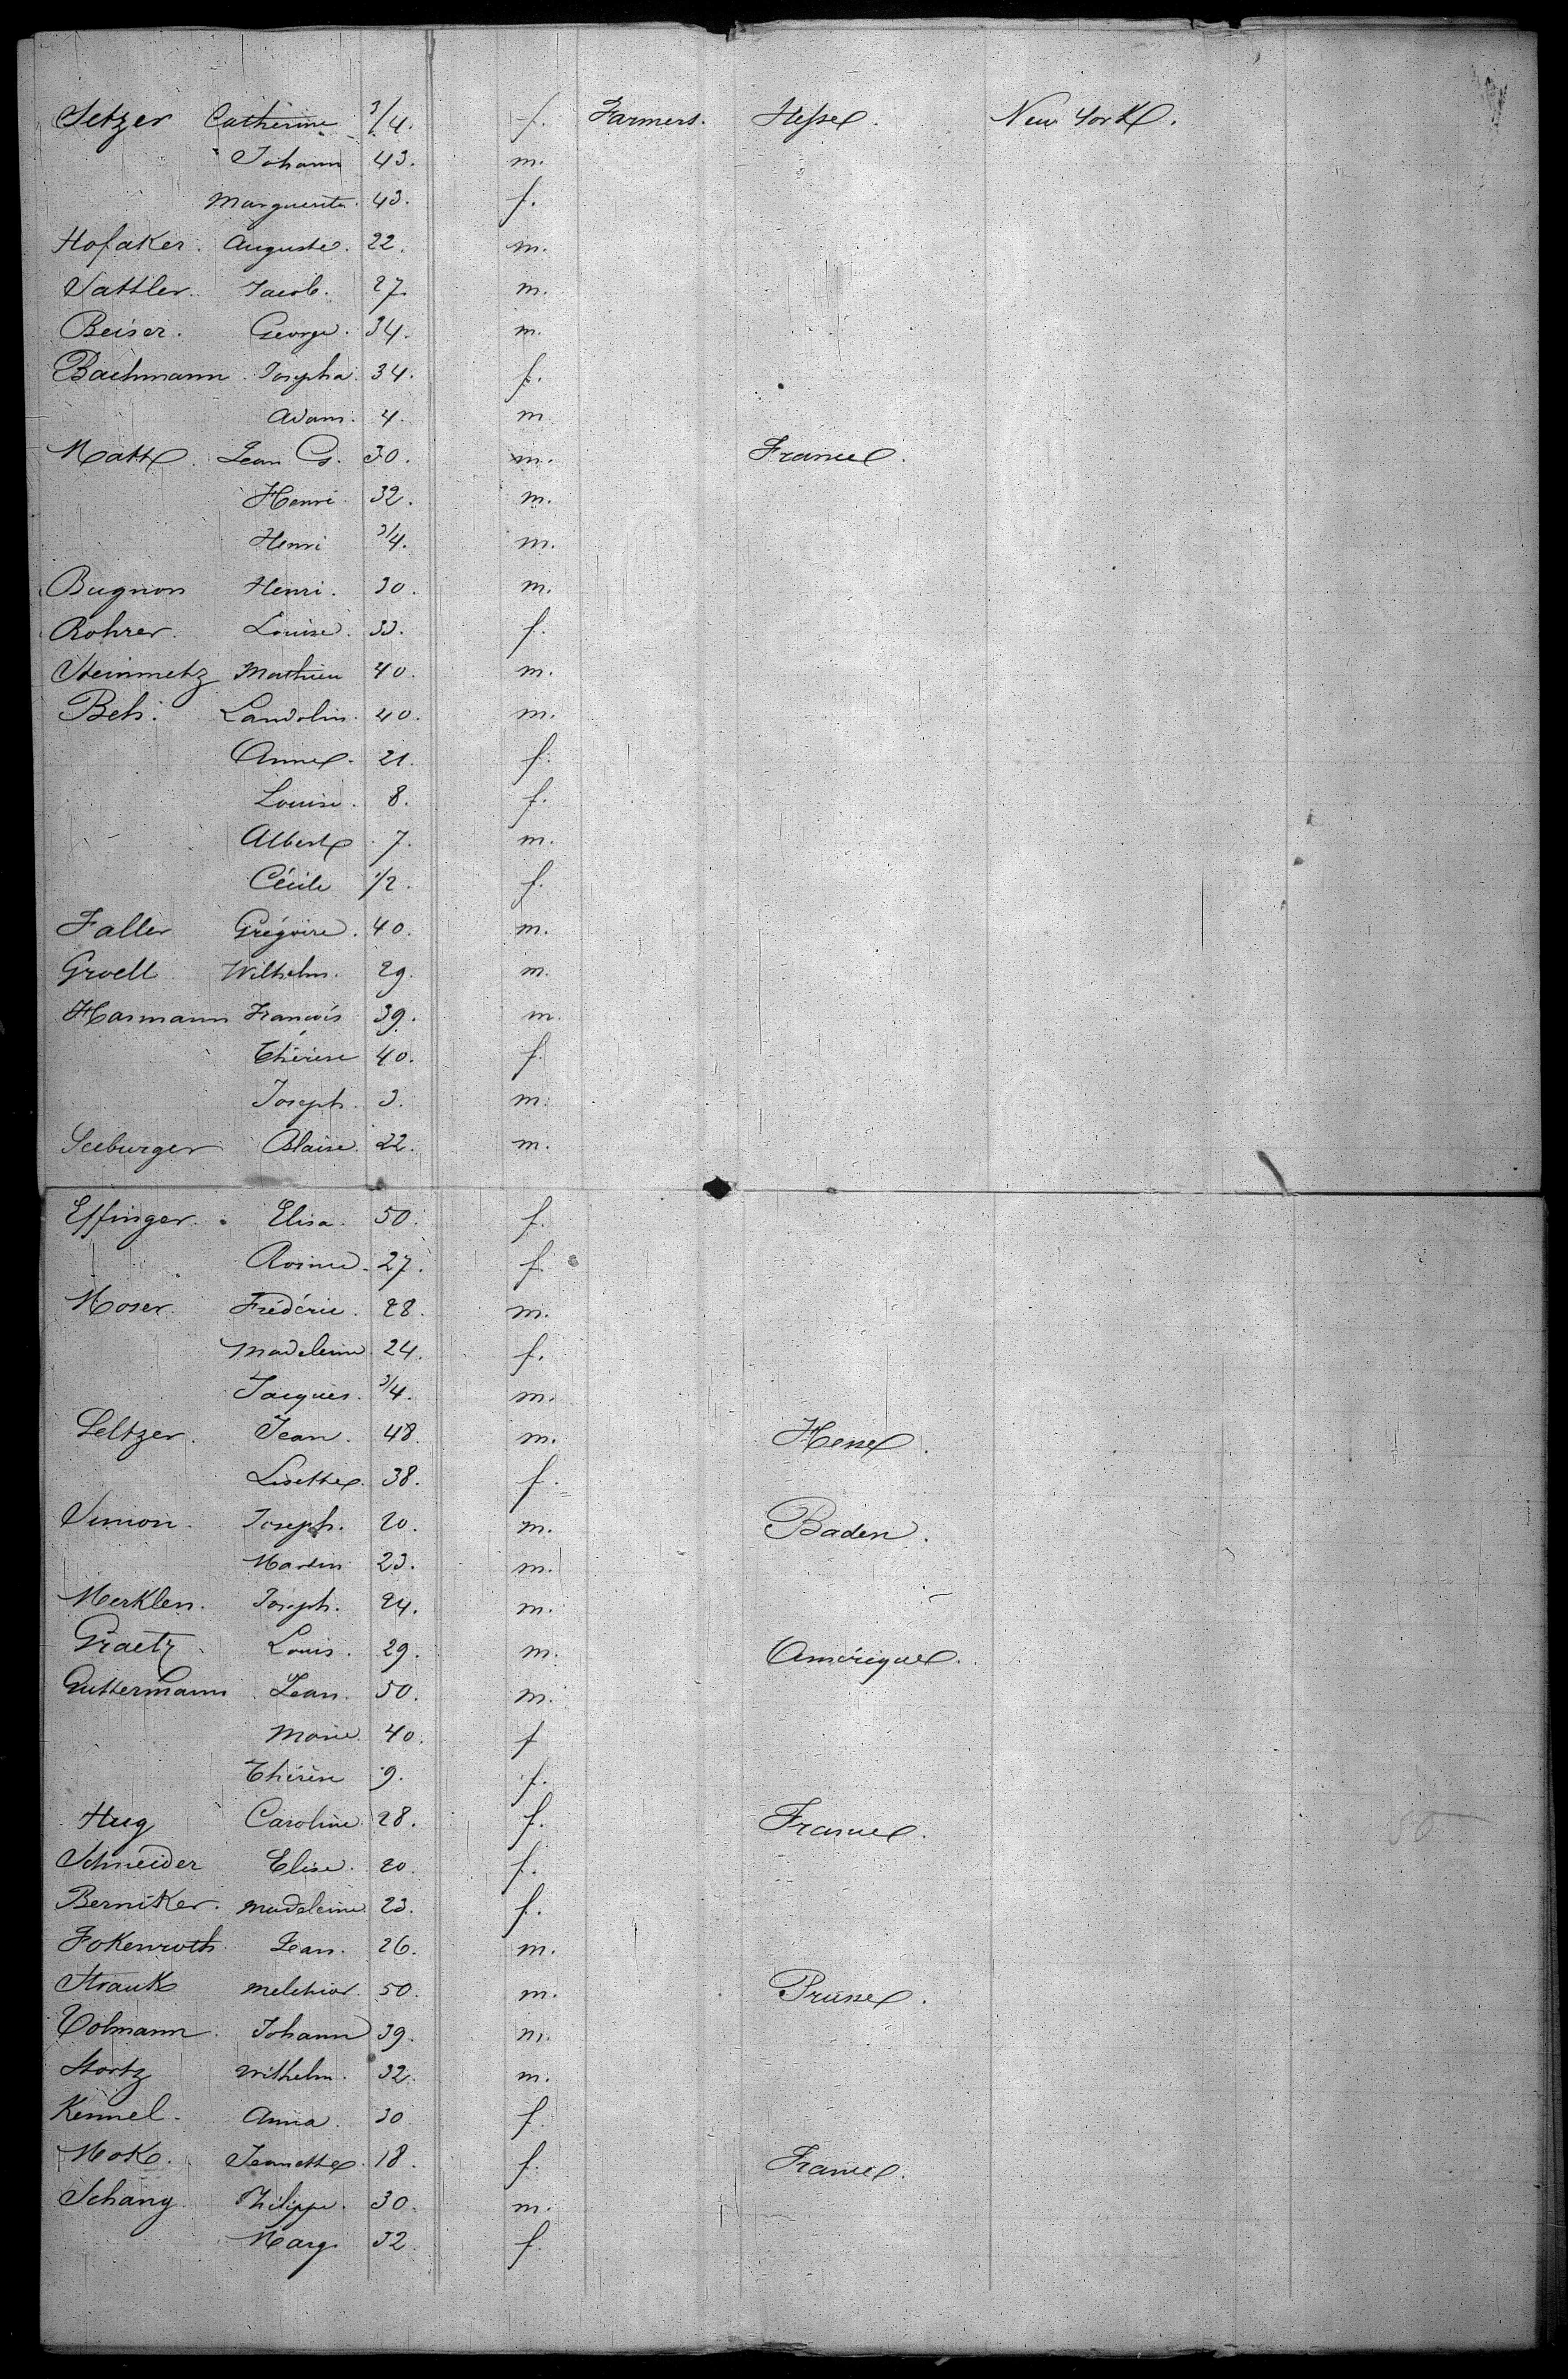 Setzer Catherine 3/4. f. Farmers. Hesse. New York.
Johann 43. m.
Marguerite. 43. f.
Hofaker. Auguste. 22. m.
Sattler. Jacob. 27. m.
Beiser. George. 34. m.
Bachmann. Josepha. 34. f.
Adam. 4. m.
Matt. Jean G. 30. m. France.
Henri 32. m.
Henri 3/4. m.
Bugnon Henri. 30. m.
Rohrer. Louise. 33. f.
Steinmetz Mathieu 40. m.
Beh. Landolin. 40. m.
Anne. 21. f.
Louise. 8. f.
Albert 7. m.
Cécile 1/2. f.
Faller Grégoire. 40. m.
Groell Wilhelm. 29. m.
Hasmann François 39. m.
Thérèse 40. f.
Joseph. 3. m.
Seeburger Blaise. 22. m.
Effinger. Elisa. 50. f.
Rosine. 27. f.
Moser. Frédéric. 28. m.
Madeleine. 24. f.
Jacques. 3/4. m.
Seltzer. Jean. 48. m. Hesse.
Lisette. 38. f.
Simon. Joseph. 20. m. Baden.
Martin 23. m.
Merklen. Joseph. 24. m.
Graetz Louis. 29. m. Amérique.
Guttermann Jean. 50. m.
Marie. 40. f
Thérèse 9. f.
Hug Caroline 28. f. France. 50
Schneider Elise. 20. f.
Berniker. Madeleine 23. f.
Fokenroth Jean. 26. m.
Strauk Melchior. 50. m. Prusse.
Volmann. Johann 39. m.
Stortz Wilhelm. 32. m.
Kennel. Anna. 30 f.
Mok. Jeannette. 18. f. France.
Schang Philippe. 30. m.
Marg. 32. f.